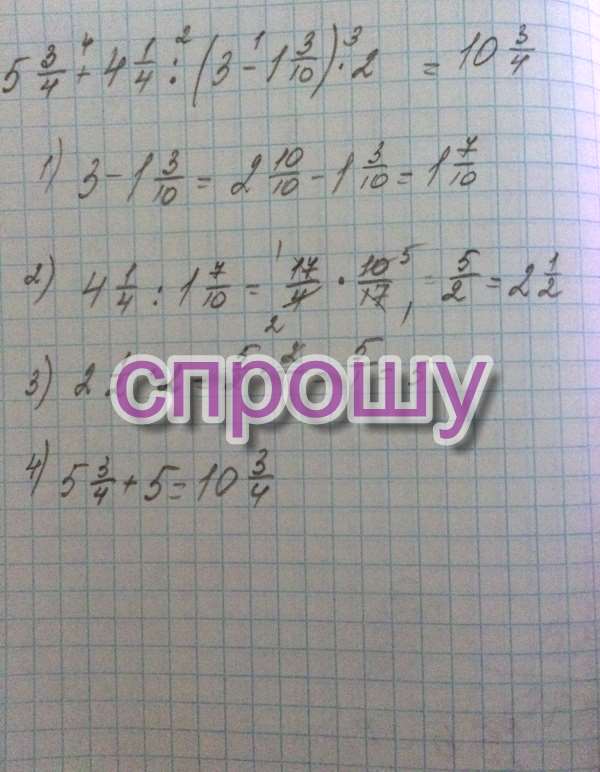 5 3/4 + 4 1/4 : (3 - 1 3/10) · 2 = 10 3/4
4 2 1 3
1) 3 - 1 3/10 = 2 10/10 - 1 3/10 = 1 7/10
2) 4 1/4 : 1 7/10 = 17/4 · 10/17 = 5/2 = 2 1/2
1 5 2 1
3) 2
спрошу
4) 5 3/4 + 5 = 10 3/4